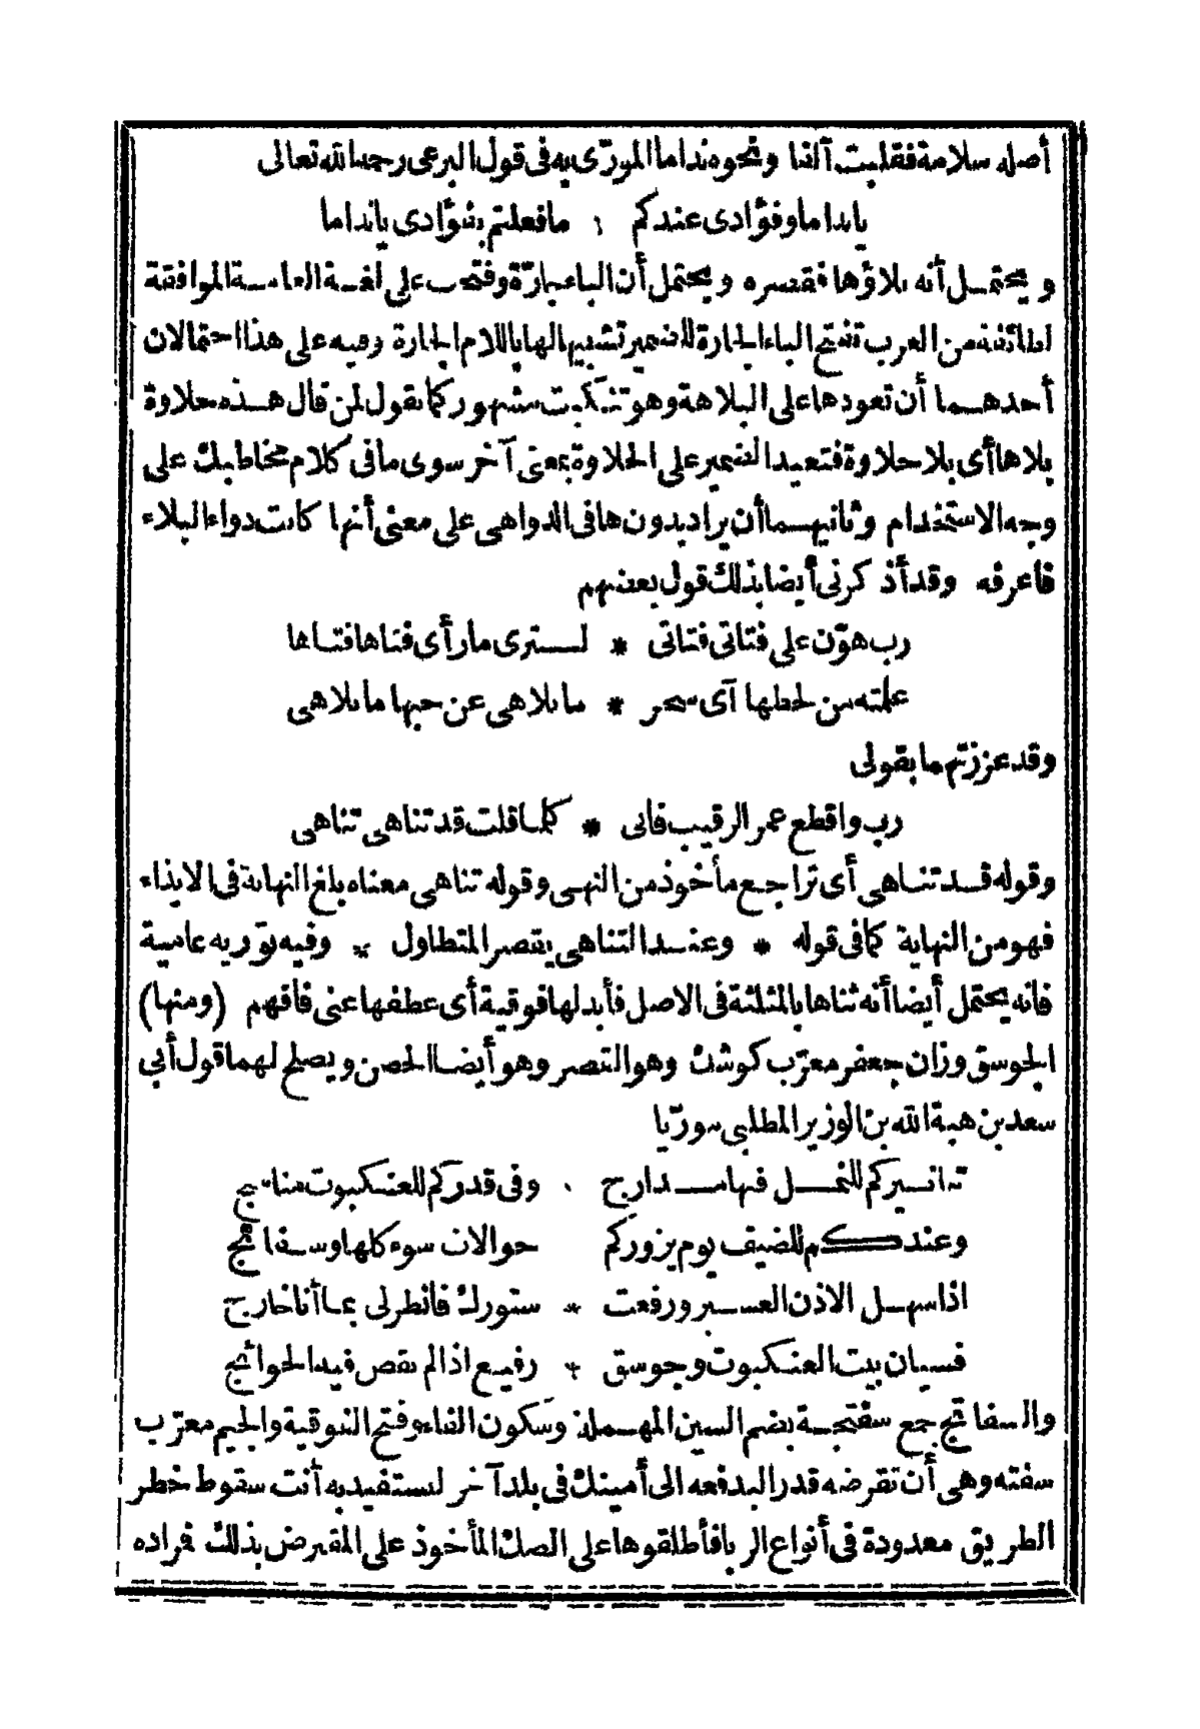 أصله سلامة فقلبت آلفا ونحوه نداما المورّى به فى قول البرعى رحمه الله تعالى
ياندا ما وفؤادى عندكم ما فعلتم بفؤادى ياندا ما
ويحتمل أنه بلاؤها فقصره ويحتمل أن الباء جارّة وفتحت على لغة العامة الموافقة
لطائفة من العرب تفتح الباء الجارة للضمير تشبيها لها باللام الجارة وفيه على هذا احتمالان
أحدهما أن تعود ها على البلاهة وهو تنكيت مشهور كما يقول لمن قال هذه حلاوة
بلاها أى بلا حلاوة فتعيد الضمير على الحلاوة بمعنى آخر سوى ما فى كلام مخاطبك على
وجه الاستخدام وثانيهما أن يراد بدون ها فى الدواهى على معنى أنها كانت دواء البلاء
فاعرفه وقد أذكرنى أيضا بذلك قول بعضهم
رب هوّن على فتاتى فتاتى * لسترى ما رأى فتاها فتاها
علمته من لحظها آى سحر * ما بلاهى عن حبها ما بلاهى
وقد عززتهما بقولى
رب واقطع عمر الرقيب فانى * كلما قلت قد تناهى تناهى
وقوله قد تناهى أى تراجع مأخوذ من النهى وقوله تناهى معناه بلغ النهاية فى الايذاء
فهو من النهاية كما فى قوله * وعند التناهى يقصر المتطاول * وفيه تورية عامية
فانه يحتمل أيضا أنه ثناها بالمثلثة فى الاصل فأبدلها فوقية أى عطفها عنى فافهم (ومنها)
الجوسق وزان جعفر معرّب كوشك وهو القصر وهو أيضا الحصن ويصلح لهما قول أبى
سعد بن هبة الله بن الوزير المطلبى مورّيا
للنمل فيها مدارج وفى قدركم للعنكبوت مناسج
وعندكم للضيف يوم يزوركم حوالات سوء كلها وسفاتج
اذا سهل الاذن العسير ورفعت * ستورك فانظر لى بما أنا خارج
فسيان بيت العنكبوت وجوسق * رفيع اذا لم تقض فيه الحوائج
والسفاتج جمع سفتجة بضم السين المهملة وسكون الفاء وفتح الفوقية والجيم معرّب
سفته وهى أن تقرضه قدرا ليدفعه الى أمينك فى بلد آخر لتستفيد به أنت سقوط خطر
الطريق معدودة فى أنواع الربا فأطلقوها على الصك المأخوذ على المقترض بذلك فراده